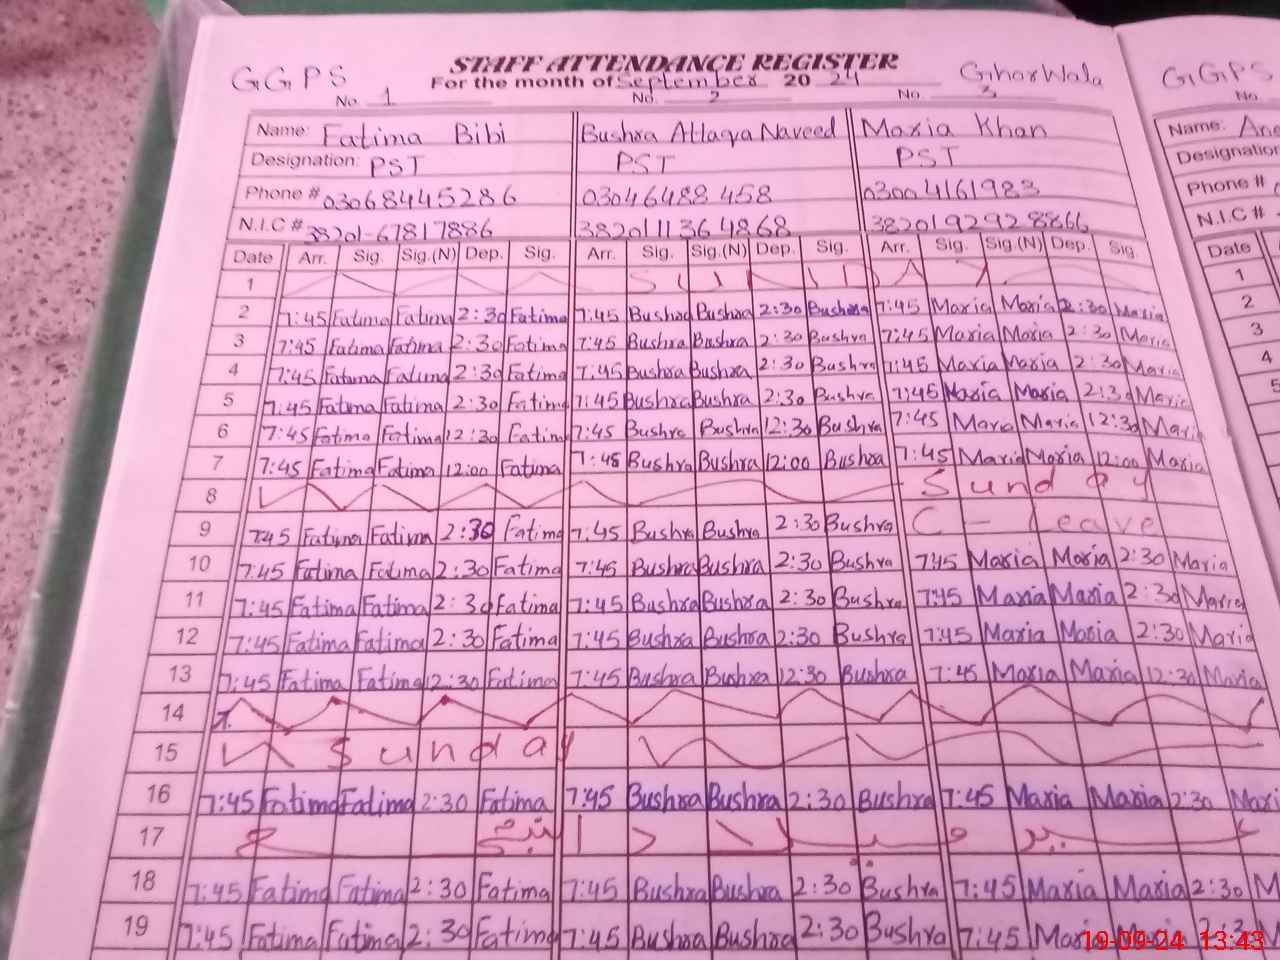 STAFF ATTENDANCE REGISTER
GGPS For the month of September 2024 GharWala GGPS
No. 1 No. 2 No. 3 No.
Name: Fatima Bibi Bushra Attaqa Naveed Maria Khan Name:
Designation: PST PST PST Designation
Phone # 03068445286 03046488458 03004161983 Phone #
N.I.C # 38201-67817886 3820111364868 3820192928866 N.I.C #
Date Arr. Sig. Sig.(N) Dep. Sig. Arr. Sig. Sig.(N) Dep. Sig. Arr. Sig. Sig.(N) Dep. Sig. Date
1 SUNDAY 1
2 7:45 Fatima Fatima 2:30 Fatima 7:45 Bushra Bushra 2:30 Bushra 7:45 Maria Maria 2:30 Maria 2
3 7:45 Fatima Fatima 2:30 Fatima 7:45 Bushra Bushra 2:30 Bushra 7:45 Maria Maria 2:30 Maria 3
4 7:45 Fatima Fatima 2:30 Fatima 7:45 Bushra Bushra 2:30 Bushra 7:45 Maria Maria 2:30 Maria 4
5 7:45 Fatima Fatima 2:30 Fatima 7:45 Bushra Bushra 2:30 Bushra 7:45 Maria Maria 2:30 Maria 5
6 7:45 Fatima Fatima 12:30 Fatima 7:45 Bushra Bushra 12:30 Bushra 7:45 Maria Maria 12:30 Maria
7 7:45 Fatima Fatima 12:00 Fatima 7:45 Bushra Bushra 12:00 Bushra 7:45 Maria Maria 12:00 Maria
8 Sunday
9 7:45 Fatima Fatima 2:30 Fatima 7:45 Bushra Bushra 2:30 Bushra C-Leave
10 7:45 Fatima Fatima 2:30 Fatima 7:45 Bushra Bushra 2:30 Bushra 7:45 Maria Maria 2:30 Maria
11 7:45 Fatima Fatima 2:30 Fatima 7:45 Bushra Bushra 2:30 Bushra 7:45 Maria Maria 2:30 Maria
12 7:45 Fatima Fatima 2:30 Fatima 7:45 Bushra Bushra 2:30 Bushra 7:45 Maria Maria 2:30 Maria
13 7:45 Fatima Fatima 12:30 Fatima 7:45 Bushra Bushra 12:30 Bushra 7:45 Maria Maria 12:30 Maria
14
15 Sunday
16 7:45 Fatima Fatima 2:30 Fatima 7:45 Bushra Bushra 2:30 Bushra 7:45 Maria Maria 2:30 Mari
17
18 7:45 Fatima Fatima 2:30 Fatima 7:45 Bushra Bushra 2:30 Bushra 7:45 Maria Maria 2:30 M
19 7:45 Fatima Fatima 2:30 Fatima 7:45 Bushra Bushra 2:30 Bushra 7:45 Maria Maria 2:30 M
19-09-24 13:43